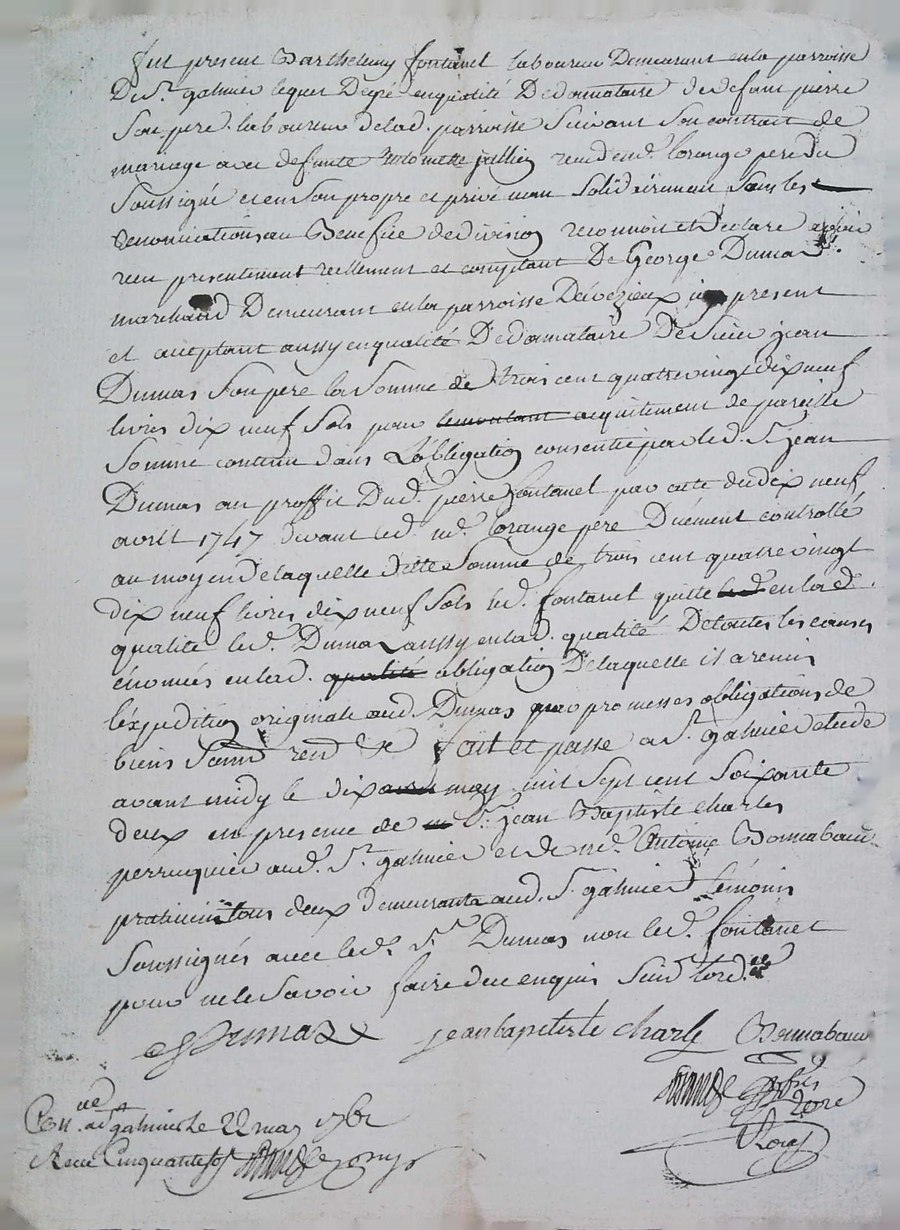 fut present Barthelemy fontanel laboureur Demeurant en la parroisse
De St. galmier lequel De gré en qualité De donnataire de defunt pierre
Son pere laboureur de lad. parroisse Suivant Son contrat de
mariage avec defunte jullien rend. med. lorange pere du
Soussigné et en Son propre et privé nom Solidairement Sans les
renonciations au Benefice de division reconnoit et Declare avoir
receu presentement reellement et comptant De George Dumas
marchand Demeurant en la parroisse De icy present
et acceptant aussy en qualité De donnataire De Sieur jean
Dumas Son pere la Somme de trois cent quatre vingt dix neuf
livres dix neuf Sols pour lemontant acquittement de pareille
Somme contenu dans L'obligation consentie par led. Sr. jean
Dumas au proffit Dud. pierre fontanel par acte du dix neuf
avril 1747 devant led. me. lorange pere Duement controllé
au moyen de laquelle ditte Somme de trois cent quatre vingt
dix neuf livres dix neuf Sols led. fontanel quitte led. en lad.
qualité led. Dumas aussy en lad. qualité De toutes les causes
énoncées en lad. qualité obligation De laquelle il a remis
l'expedition originale aud. Dumas par promesses obligations de
biens Soum. ren. &c fait et passé a St. galmier etude
avant midy le dix avril may mil Sept cent Soixante
deux en presence de Sr. jean Baptiste charles
perruquier aud. St. galmier et de me. Antoine Bonnabaud
praticien tous deux demeurants aud. St. galmier temoins
Soussignés avec led. Sr. Dumas non led. fontanel
pour ne le Savoir faire de ce enquis Suiv. l'ord.
G Dumas jean baptiste charle Bonnabaud
Con. a St galmier le 22 may 1762
Receu Cinquante sols